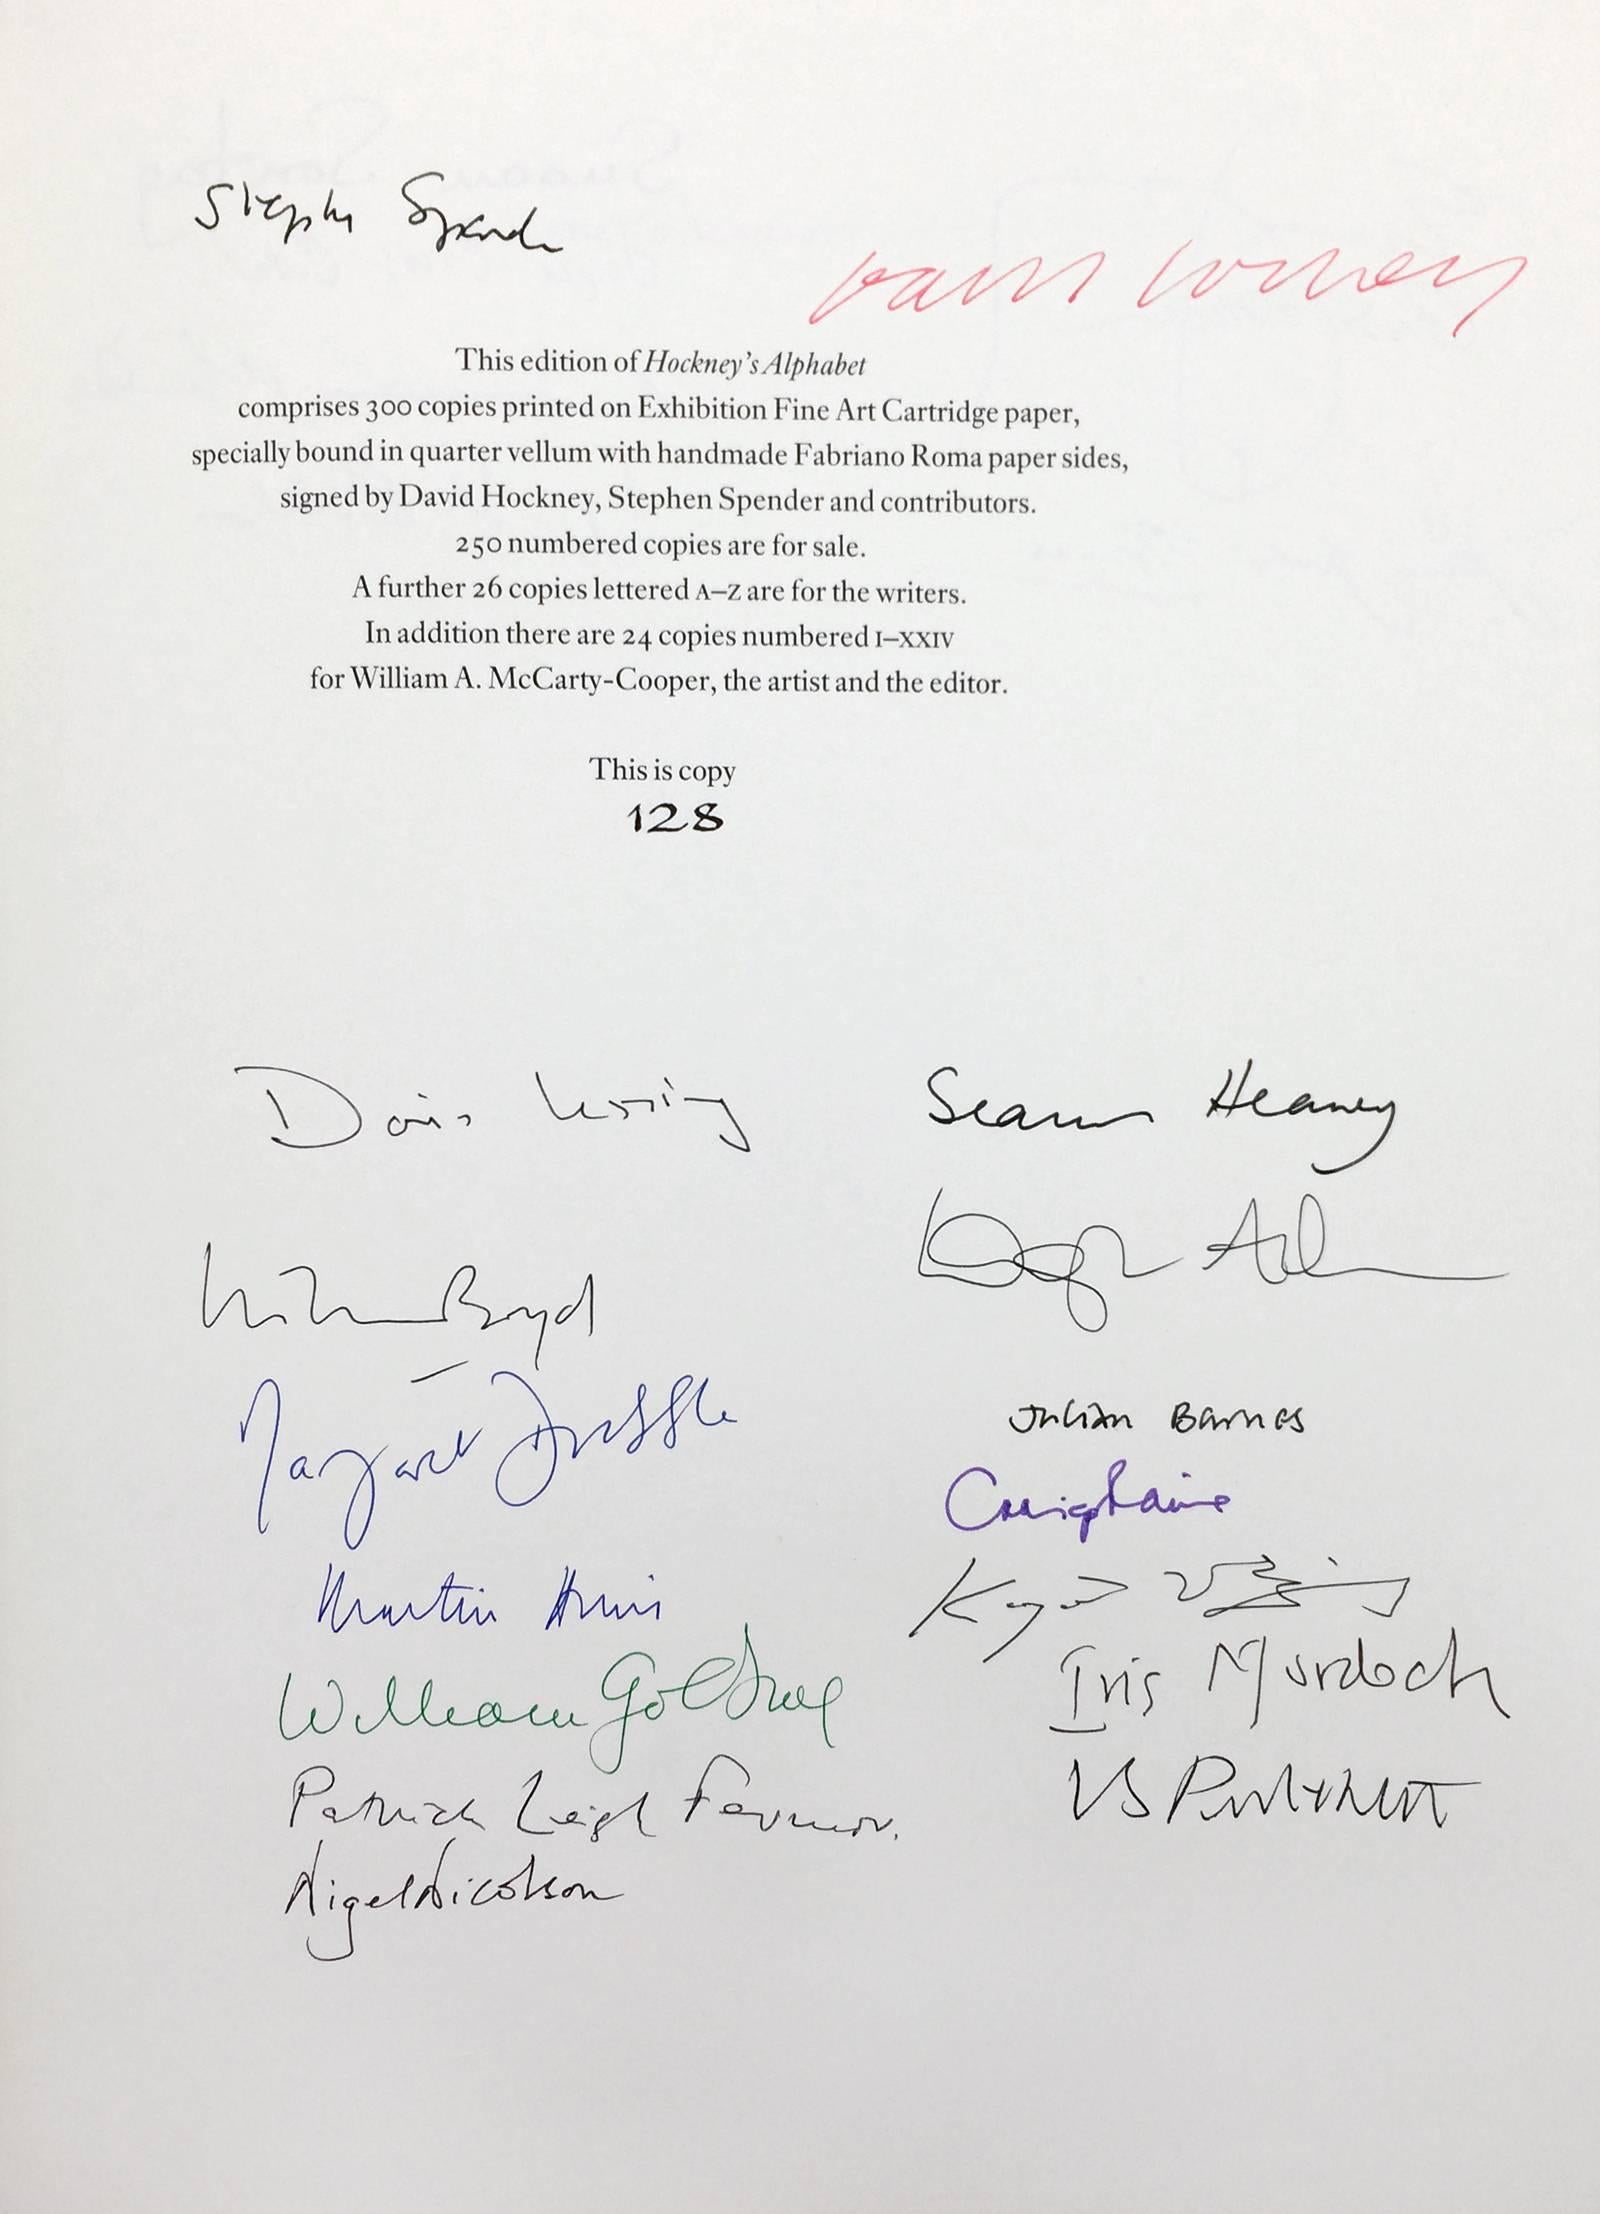 Stephen Spender
David Hockney
This edition of Hockney's Alphabet
comprises 300 copies printed on Exhibition Fine Art Cartridge paper,
specially bound in quarter vellum with handmade Fabriano Roma paper sides,
signed by David Hockney, Stephen Spender and contributors.
250 numbered copies are for sale.
A further 26 copies lettered A–Z are for the writers.
In addition there are 24 copies numbered I–XXIV
for William A. McCarty-Cooper, the artist and the editor.
This is copy
128
Doris Lessing
Seamus Heaney
William Boyd
Douglas Adams
Margaret Drabble
Julian Barnes
Craig Raine
Martin Amis
Kazuo Ishiguro
William Golding
Iris Murdoch
Patrick Leigh Fermor.
VS Pritchett
Nigel Nicolson